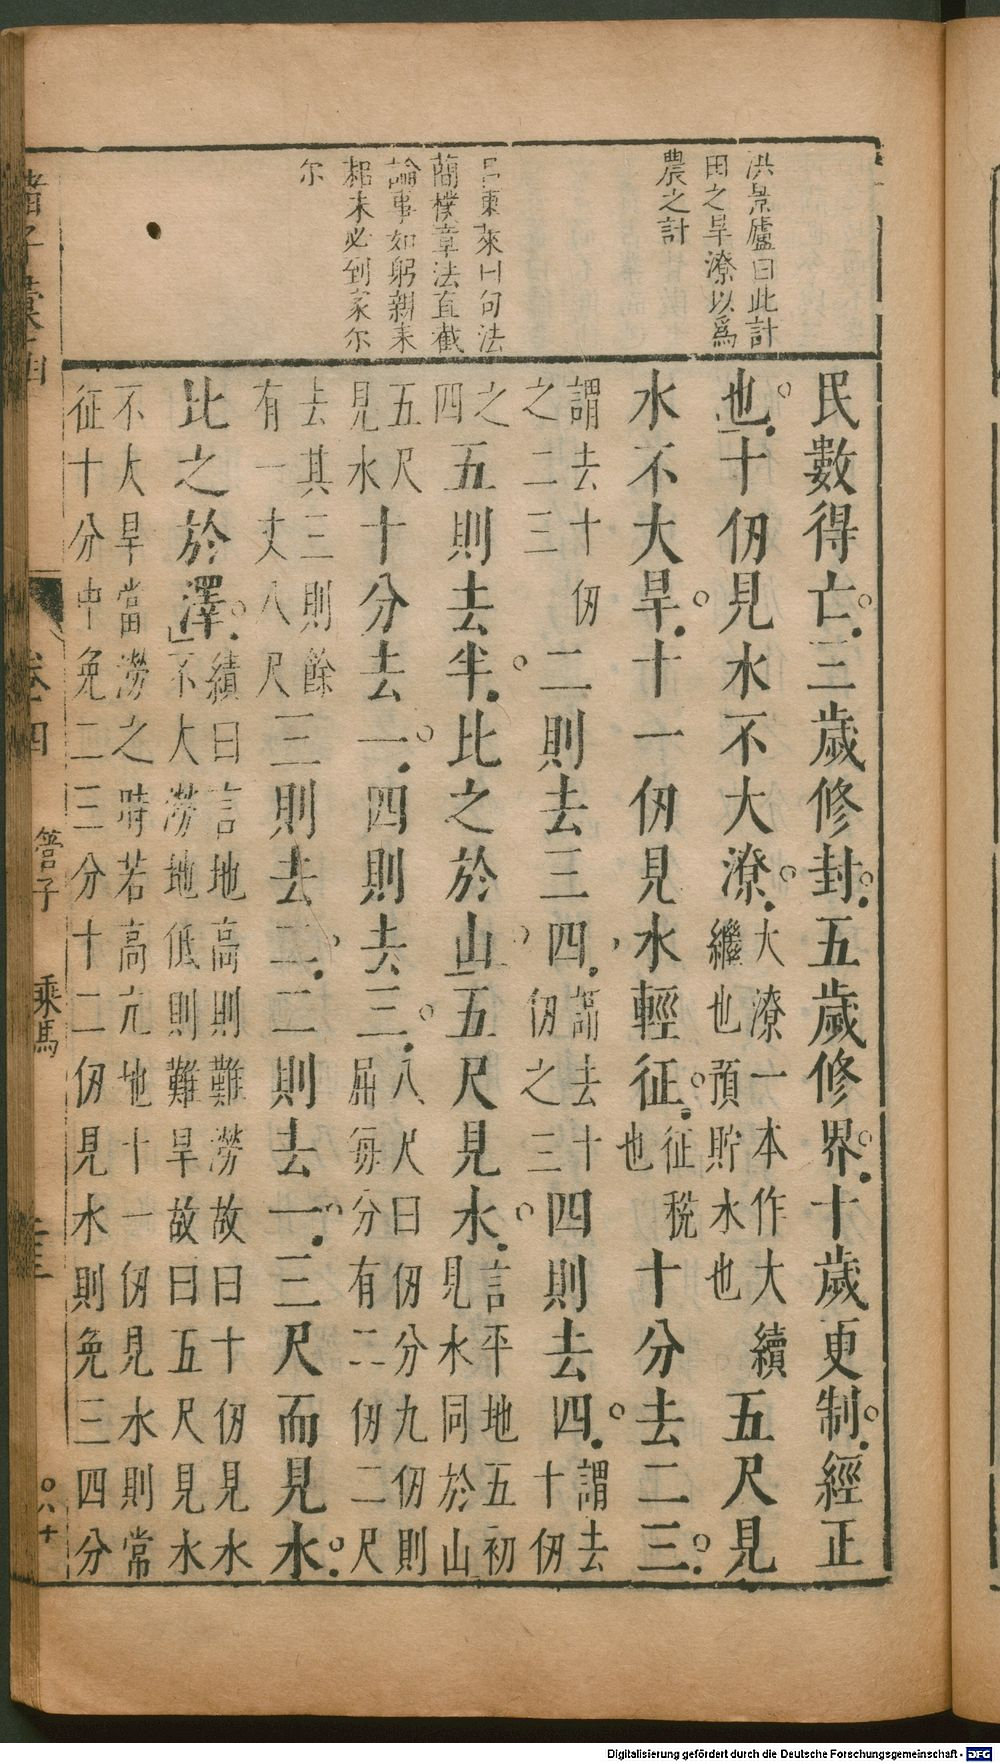 洪景廬曰此計
田之旱潦以爲
農之計
呂東萊曰句法
簡樸章法直截
論事如躬親耒
耜未必到家尔
尔
民數得亡三歲修封五歲修界十歲更制經正
也十仞見水不大潦大潦一本作大續繼也預貯水也五尺見
水不大旱十一仞見水輕征征稅也十分去二三
謂去十仞之二三二則去三四謂去十仞之三四則去四謂去十仞
之四五則去半比之於山五尺見水言平地五初見水同於山
五尺見水十分去一四則去三八尺曰仞分九仞則屈每分有二仞二尺
去其三則餘有一丈八尺三則去二二則去一三尺而見水
比之於澤績曰言地高則難澇故曰十仞見水不大澇地低則難旱故曰五尺見水
不大旱當澇之時若高亢地十一仞見水則常
征十分中免二三分十二仞見水則免三四分
諸子彙函 卷四 管子 乘馬
〇八十
Digitalisierung gefördert durch die Deutsche Forschungsgemeinschaft - DFG